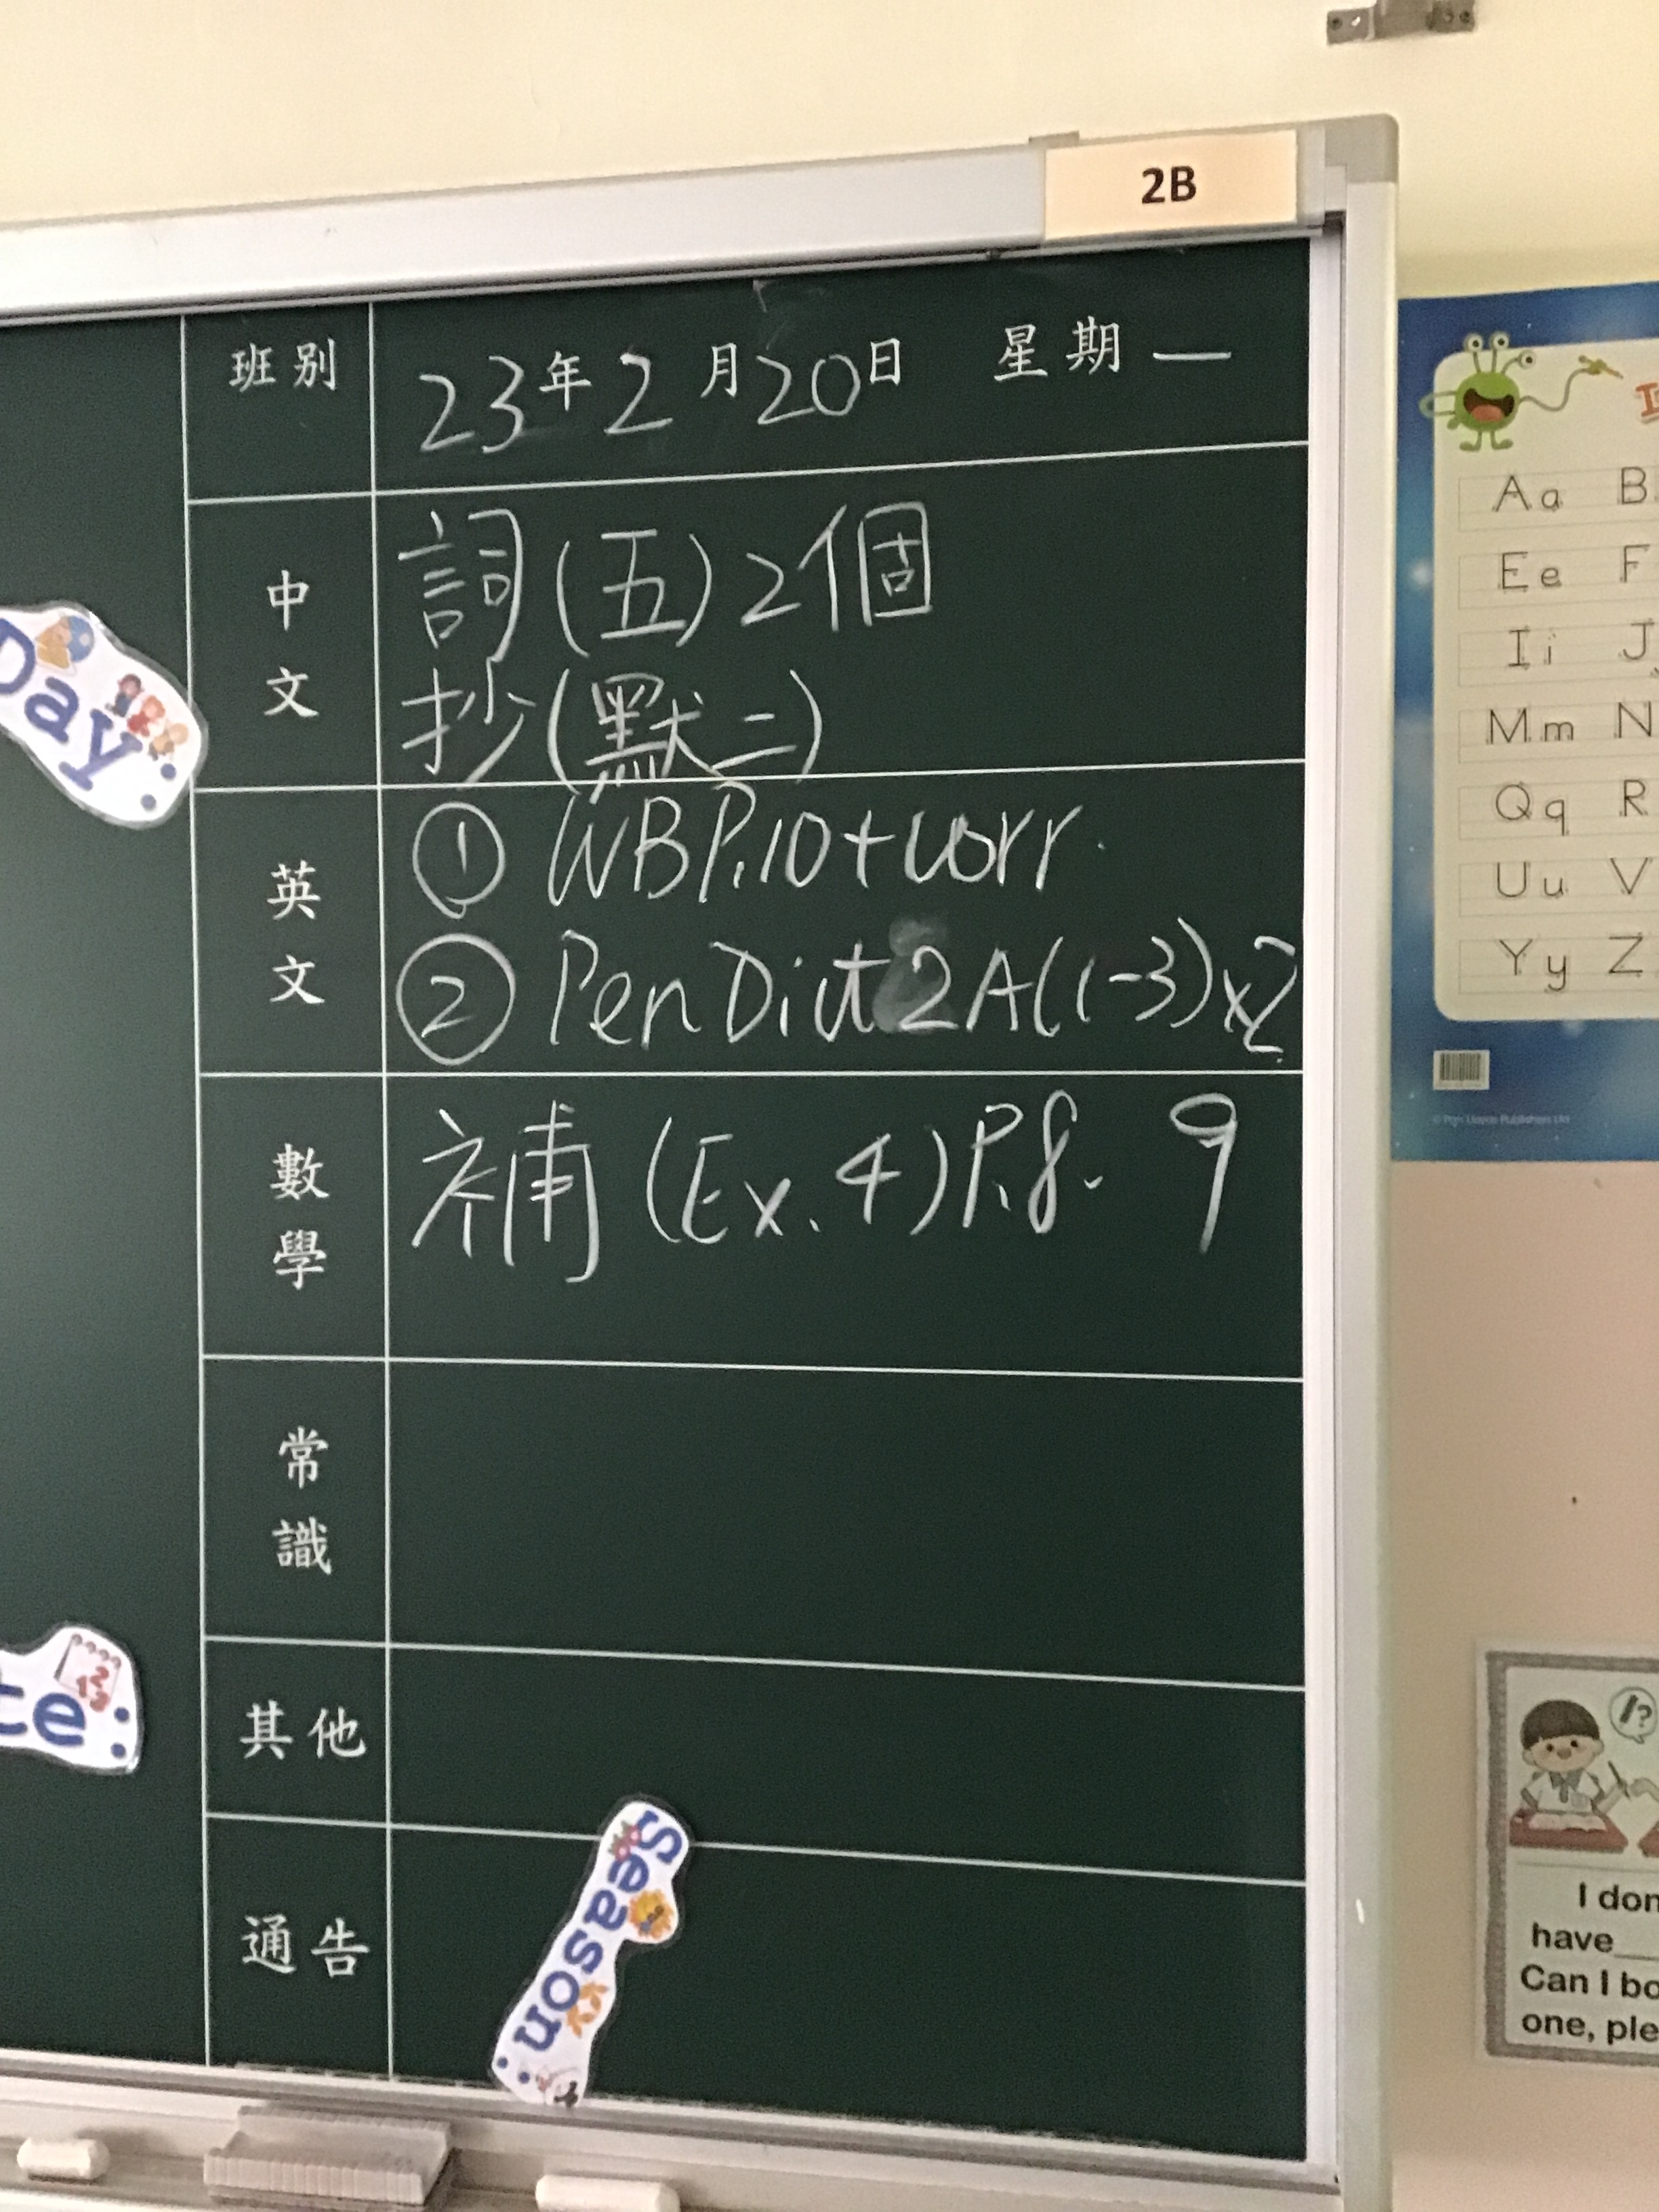 2B
班別 23年2月20日 星期一
中文 詞(五)2個
抄(默二)
英文 ① WB P.10+corr.
② Pen Dict 2A(1-3)x2
數學 補(Ex.4)P.8-9
常識
其他
通告
Day:
te:
Season:
Aa B
Ee F
Ii J
Mm N
Qq R
Uu V
Yy Z
1?
I don
have
Can I bo
one, ple